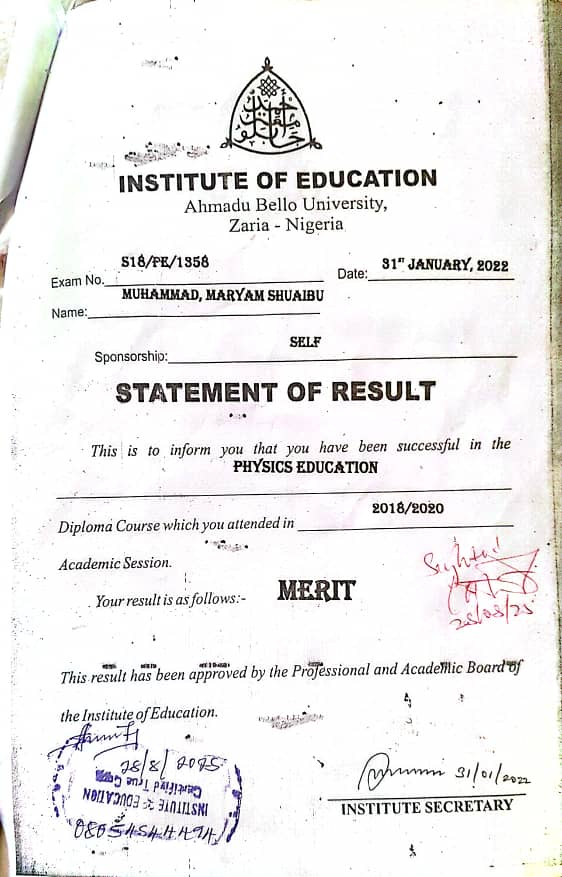 INSTITUTE OF EDUCATION
Ahmadu Bello University,
Zaria - Nigeria
Exam No. S18/PE/1358 Date: 31ST JANUARY, 2022
Name: MUHAMMAD, MARYAM SHUAIBU
Sponsorship: SELF
STATEMENT OF RESULT
This is to inform you that you have been successful in the
PHYSICS EDUCATION
Diploma Course which you attended in 2018/2020
Academic Session.
Your result is as follows:- MERIT
Sighted
28/08/25
This result has been approved by the Professional and Academic Board of
the Institute of Education.
28/8/2025
Certified True Copy
INSTITUTE OF EDUCATION
31/01/2022
INSTITUTE SECRETARY